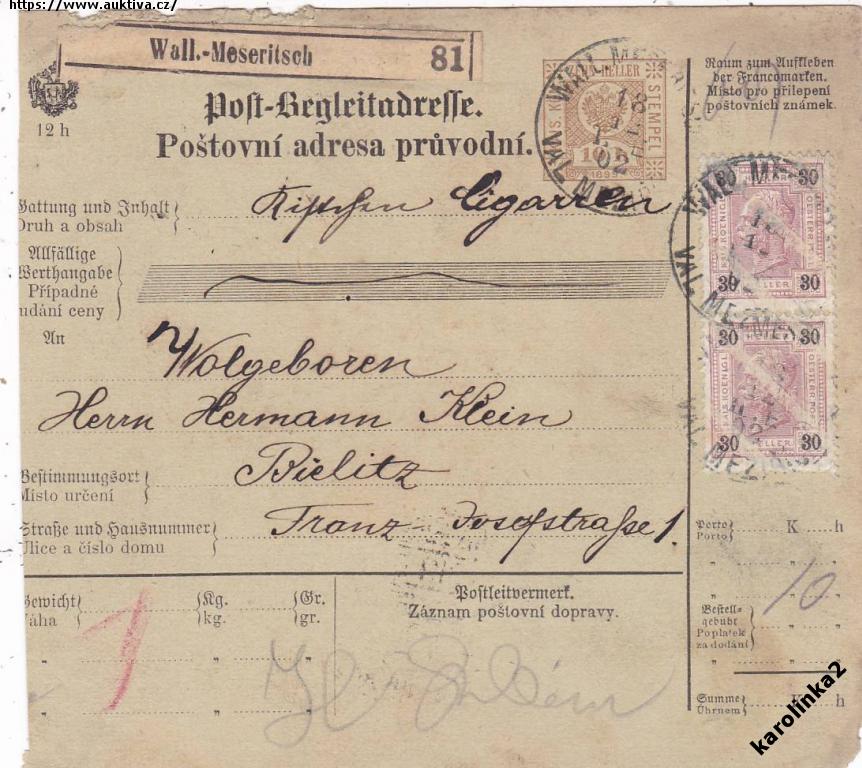 https://www.auktiva.cz/
Wall.-Meseritsch 81
12 h
Post-Begleitadresse.
Poštovní adresa průvodní.
HELLER
STEMPEL
10
1899
WALL. MES
18
1
02
VAL. MEZ
Raum zum Aufkleben
der Francomarken.
Místo pro přilepení
poštovních známek.
Gattung und Inhalt
Druh a obsah
Kistchen Cigarren
Allfällige
Werthangabe
Případné
udání ceny
An
Wolgeboren
Herrn Hermann Klein
Bestimmungsort
Místo určení
Bielitz
Straße und Hausnummer
Ulice a číslo domu
Franz-Josefstraße 1.
30 30
KAIS. KOENIGL. OESTERR. POST
30 HELLER 30
30 30
KAIS. KOENIGL. OESTERR. POST
30 HELLER 30
Gewicht Kg. Gr.
Váha kg. gr.
1
Postleitvermerk.
Záznam poštovní dopravy.
Porto K h
Porto
10
Bestell-
gebühr
Poplatek
za dodání
Summe K h
Úhrnem
karolinka2